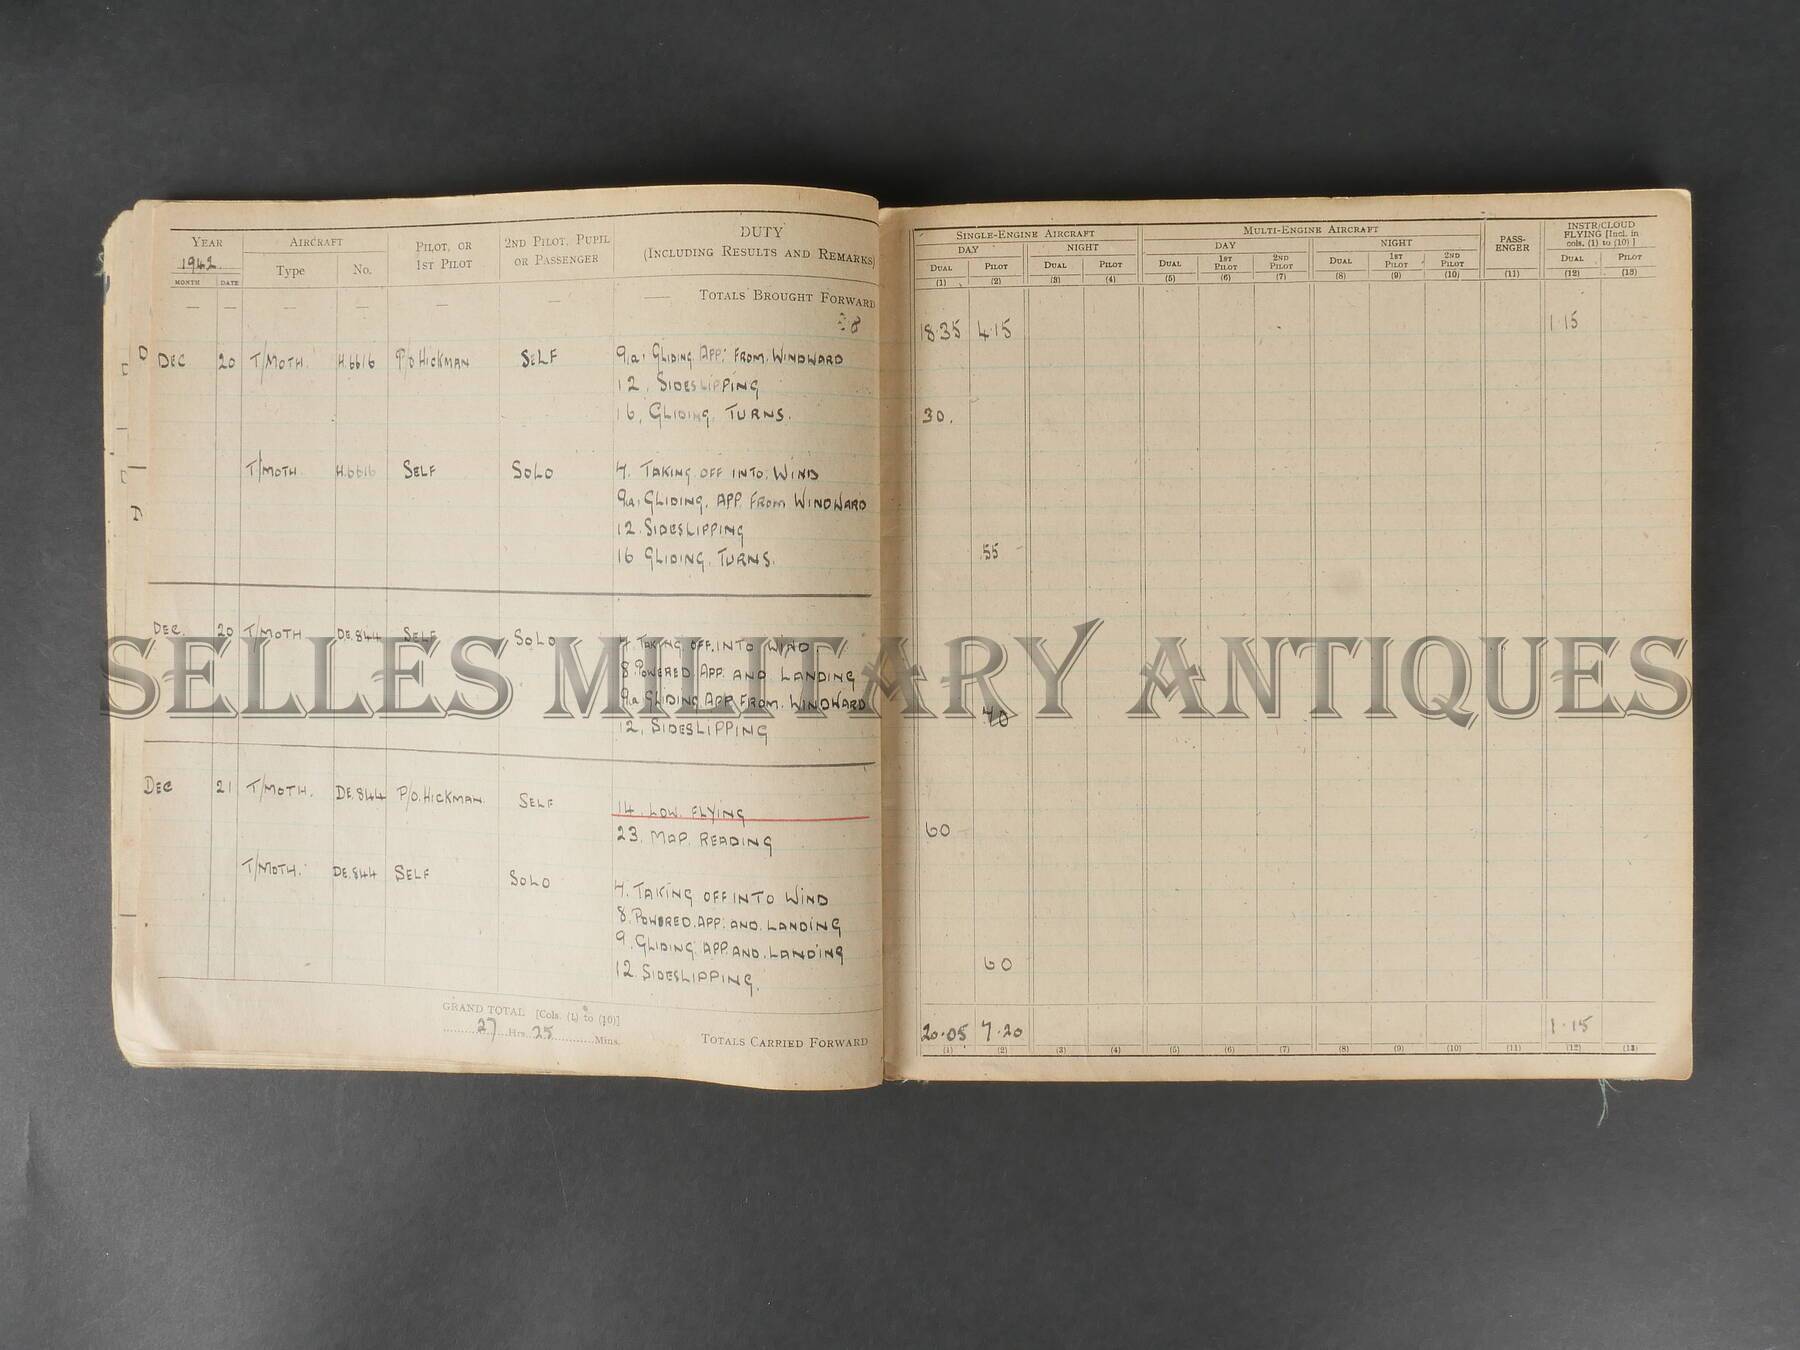 YEAR AIRCRAFT PILOT, OR 1ST PILOT 2ND PILOT, PUPIL OR PASSENGER DUTY (INCLUDING RESULTS AND REMARKS)
1942 Type No.
MONTH DATE
— — — — — — —— TOTALS BROUGHT FORWARD
DEC 20 T/MOTH. H.6616 P/O HICKMAN SELF 9a. GLIDING. APP. FROM. WINDWARD
12. SIDESLIPPING
16. GLIDING. TURNS.
T/MOTH H.6616 SELF SOLO 4. TAKING OFF INTO WIND
9a. GLIDING. APP. FROM WINDWARD
12. SIDESLIPPING
16 GLIDING. TURNS.
DEC. 20 T/MOTH DE.844 SELF SOLO 4. TAKING OFF. INTO WIND
8. POWERED. APP. AND LANDING
9a GLIDING. APP. FROM. WINDWARD
12. SIDESLIPPING
DEC 21 T/MOTH. DE.844 P/O. HICKMAN SELF 14. LOW. FLYING
23. MAP. READING
T/MOTH. DE.844 SELF SOLO 4. TAKING OFF INTO WIND
8. POWERED. APP. AND. LANDING
9. GLIDING. APP. AND. LANDING
12. SIDESLIPPING.
GRAND TOTAL [Cols. (1) to (10)]
27 Hrs. 25 Mins.
TOTALS CARRIED FORWARD
SINGLE-ENGINE AIRCRAFT MULTI-ENGINE AIRCRAFT PASSENGER INSTR/CLOUD FLYING [Incl. in cols. (1) to (10)]
DAY NIGHT DAY NIGHT
DUAL PILOT DUAL PILOT DUAL 1ST PILOT 2ND PILOT DUAL 1ST PILOT 2ND PILOT DUAL PILOT
(1) (2) (3) (4) (5) (6) (7) (8) (9) (10) (11) (12) (13)
18.35 4.15 1.15
30.
55
40
60
60
20.05 7.20 1.15
(1) (2) (3) (4) (5) (6) (7) (8) (9) (10) (11) (12) (13)
SELLES MILITARY ANTIQUES